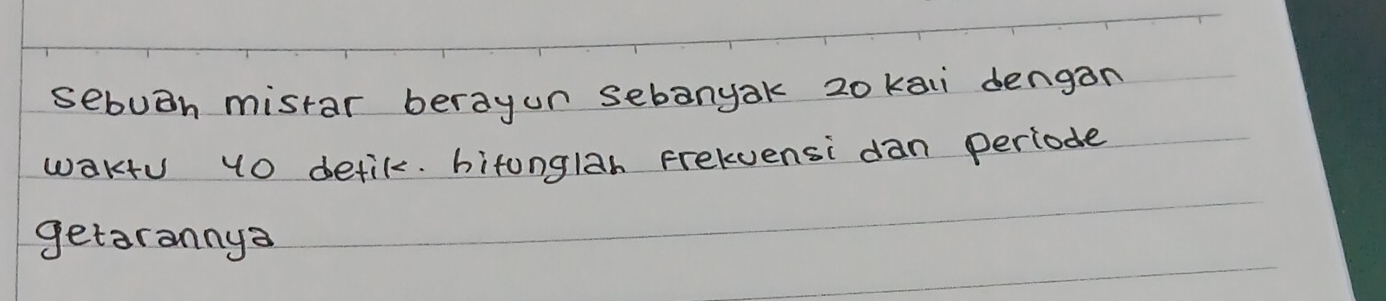 sebuah mistar berayun sebanyak 20 kali dengan
waktu 40 detik. hitunglah frekuensi dan periode
getarannya